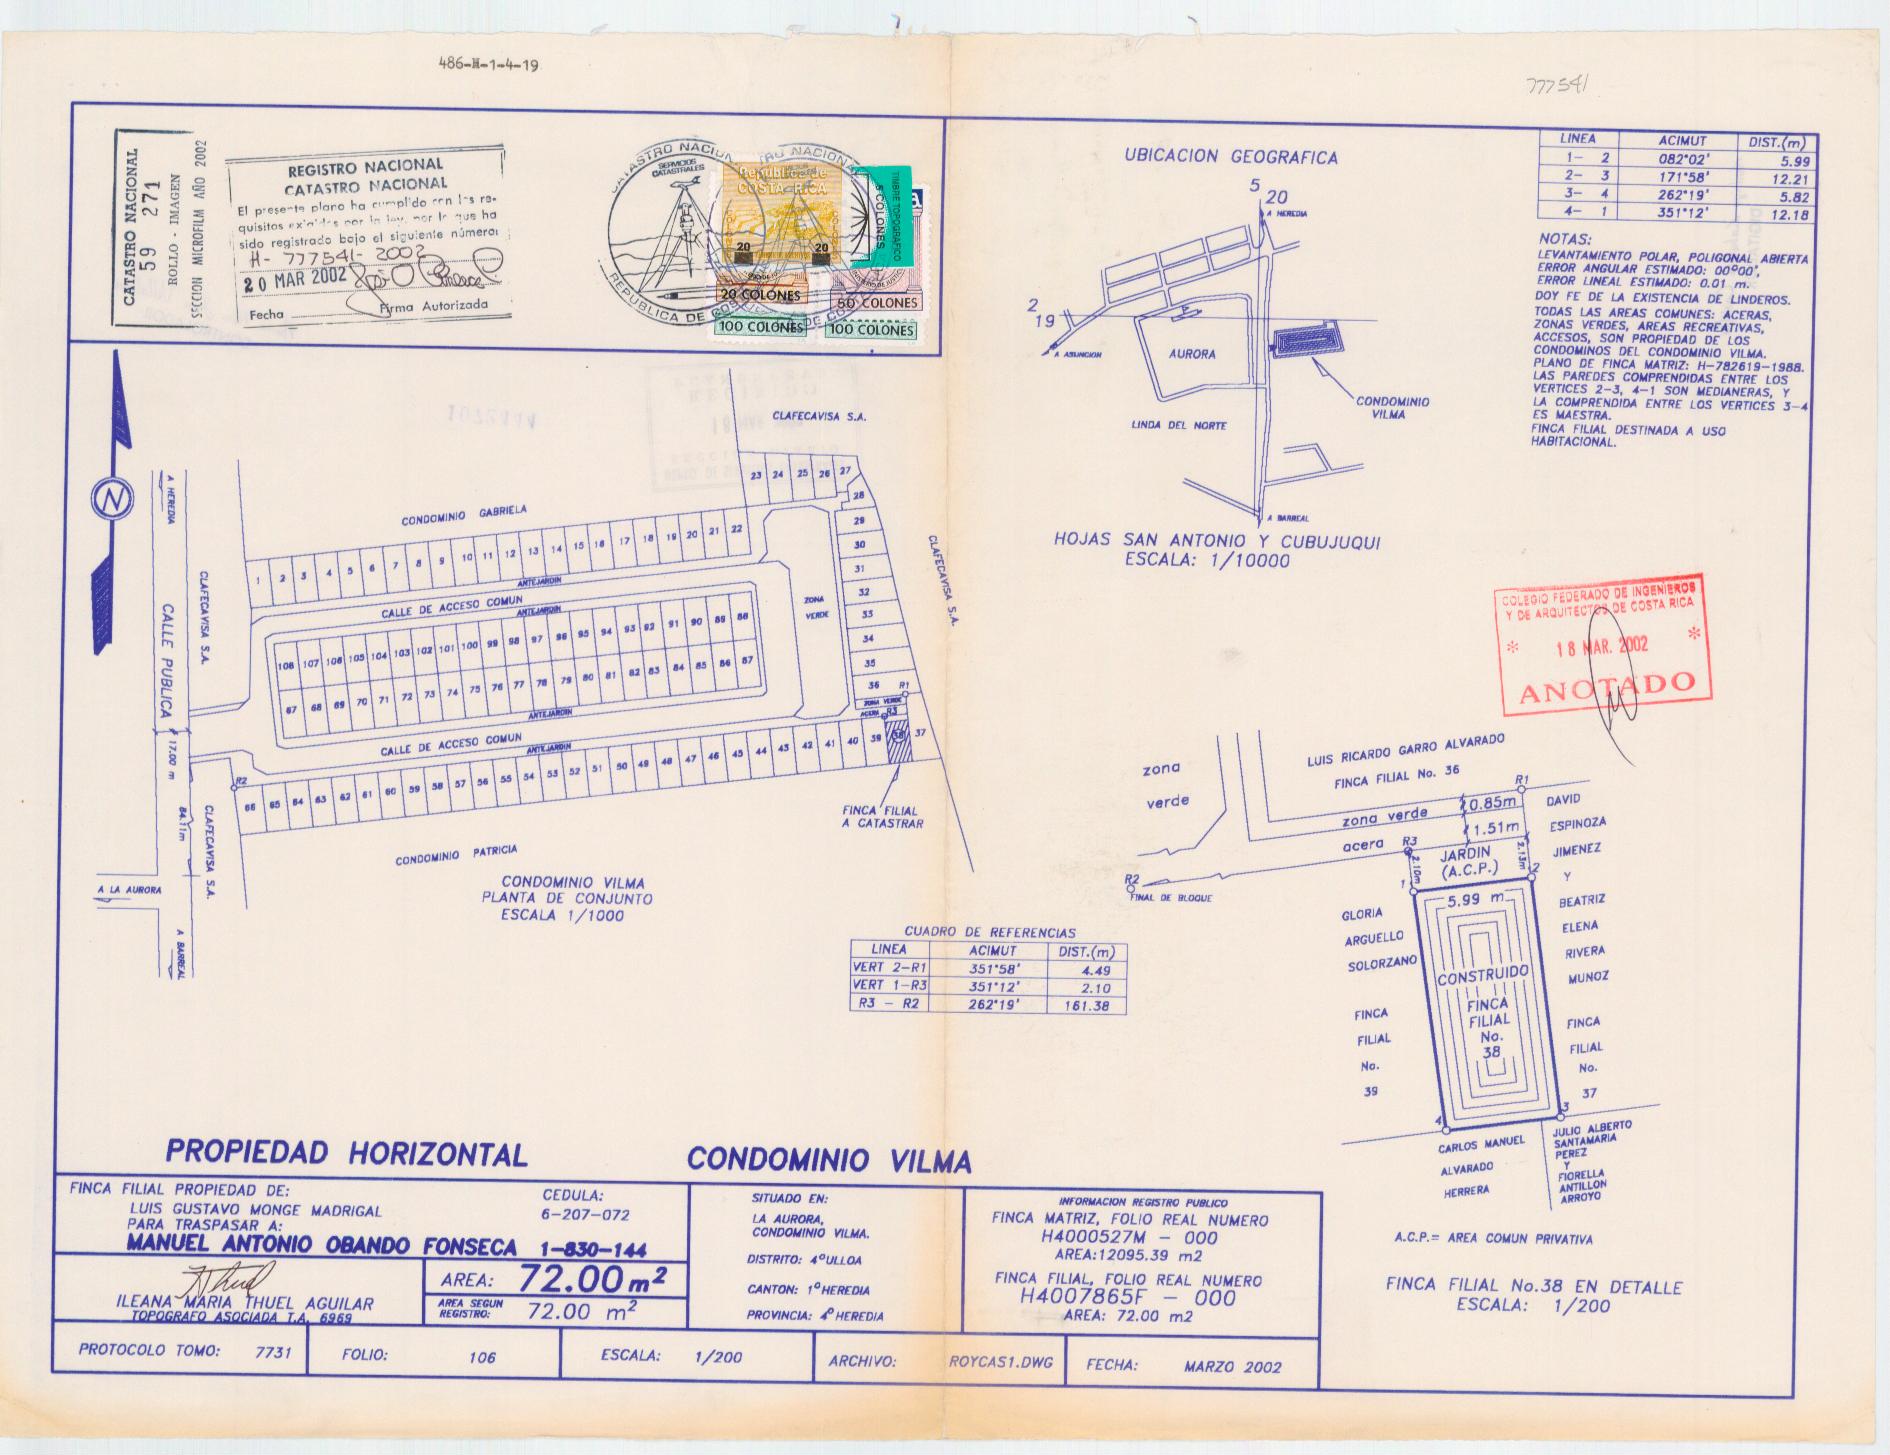 486-H-1-4-19
777541
CATASTRO NACIONAL
59 271
ROLLO - IMAGEN
SECCION MICROFILM AÑO 2002
REGISTRO NACIONAL
CATASTRO NACIONAL
El presente plano ha cumplido con los re-
quisitos exigidos por la ley, por lo que ha
sido registrado bajo el siguiente número:
H- 777541-2002
20 MAR 2002
Fecha
Firma Autorizada
CATASTRO NACIONAL
SERVICIOS
CATASTRALES
REPUBLICA DE COS
República de
COSTA RICA
20 20
20 COLONES
50 COLONES
100 COLONES
100 COLONES
5 COLONES
TIMBRE TOPOGRAFICO
UBICACION GEOGRAFICA
5
20
A HEREDIA
2
19
A ASUNCION
AURORA
CONDOMINIO
VILMA
LINDA DEL NORTE
A BARREAL
HOJAS SAN ANTONIO Y CUBUJUQUI
ESCALA: 1/10000
LINEA ACIMUT DIST.(m)
1- 2 082°02' 5.99
2- 3 171°58' 12.21
3- 4 262°19' 5.82
4- 1 351°12' 12.18
NOTAS:
LEVANTAMIENTO POLAR, POLIGONAL ABIERTA
ERROR ANGULAR ESTIMADO: 00°00',
ERROR LINEAL ESTIMADO: 0.01 m.
DOY FE DE LA EXISTENCIA DE LINDEROS.
TODAS LAS AREAS COMUNES: ACERAS,
ZONAS VERDES, AREAS RECREATIVAS,
ACCESOS, SON PROPIEDAD DE LOS
CONDOMINOS DEL CONDOMINIO VILMA.
PLANO DE FINCA MATRIZ: H-782619-1988.
LAS PAREDES COMPRENDIDAS ENTRE LOS
VERTICES 2-3, 4-1 SON MEDIANERAS, Y
LA COMPRENDIDA ENTRE LOS VERTICES 3-4
ES MAESTRA.
FINCA FILIAL DESTINADA A USO
HABITACIONAL.
COLEGIO FEDERADO DE INGENIEROS
Y DE ARQUITECTOS DE COSTA RICA
* 18 MAR. 2002 *
ANOTADO
N
A HEREDIA
CALLE PUBLICA
17.00 m
84.11m
CLAFECAVISA S.A.
CLAFECAVISA S.A.
A LA AURORA
A BARREAL
CLAFECAVISA S.A.
CLAFECAVISA S.A.
CONDOMINIO GABRIELA
23 24 25 26 27
28
29
30
31
32
33
34
35
36
R1
1 2 3 4 5 6 7 8 9 10 11 12 13 14 15 16 17 18 19 20 21 22
ANTEJARDIN
CALLE DE ACCESO COMUN
ANTEJARDIN
ZONA
VERDE
108 107 106 105 104 103 102 101 100 99 98 97 96 95 94 93 92 91 90 89 88
67 68 69 70 71 72 73 74 75 76 77 78 79 80 81 82 83 84 85 86 87
ANTEJARDIN
CALLE DE ACCESO COMUN
ANTEJARDIN
ZONA VERDE
ACERA
R3
R2
66 65 64 63 62 61 60 59 58 57 56 55 54 53 52 51 50 49 48 47 46 45 44 43 42 41 40 39 38 37
FINCA FILIAL
A CATASTRAR
CONDOMINIO PATRICIA
CONDOMINIO VILMA
PLANTA DE CONJUNTO
ESCALA 1/1000
CUADRO DE REFERENCIAS
LINEA ACIMUT DIST.(m)
VERT 2-R1 351°58' 4.49
VERT 1-R3 351°12' 2.10
R3 - R2 262°19' 161.38
zona
verde
LUIS RICARDO GARRO ALVARADO
FINCA FILIAL No. 36
R1
zona verde
0.85m
acera
1.51m
R3
R2
FINAL DE BLOQUE
JARDIN
(A.C.P.)
2.10m
2.13m
1
2
5.99 m
CONSTRUIDO
FINCA
FILIAL
No.
38
4
3
GLORIA
ARGUELLO
SOLORZANO
FINCA
FILIAL
No.
39
DAVID
ESPINOZA
JIMENEZ
Y
BEATRIZ
ELENA
RIVERA
MUNOZ
FINCA
FILIAL
No.
37
CARLOS MANUEL
ALVARADO
HERRERA
JULIO ALBERTO
SANTAMARIA
PEREZ
Y
FIORELLA
ANTILLON
ARROYO
A.C.P.= AREA COMUN PRIVATIVA
FINCA FILIAL No.38 EN DETALLE
ESCALA: 1/200
PROPIEDAD HORIZONTAL CONDOMINIO VILMA
FINCA FILIAL PROPIEDAD DE: CEDULA:
LUIS GUSTAVO MONGE MADRIGAL 6-207-072
PARA TRASPASAR A:
MANUEL ANTONIO OBANDO FONSECA 1-830-144
ILEANA MARIA THUEL AGUILAR
TOPOGRAFO ASOCIADA T.A. 6969
AREA: 72.00 m2
AREA SEGUN
REGISTRO: 72.00 m2
SITUADO EN:
LA AURORA,
CONDOMINIO VILMA.
DISTRITO: 4°ULLOA
CANTON: 1°HEREDIA
PROVINCIA: 4°HEREDIA
INFORMACION REGISTRO PUBLICO
FINCA MATRIZ, FOLIO REAL NUMERO
H4000527M - 000
AREA:12095.39 m2
FINCA FILIAL, FOLIO REAL NUMERO
H4007865F - 000
AREA: 72.00 m2
PROTOCOLO TOMO: 7731 FOLIO: 106 ESCALA: 1/200 ARCHIVO: ROYCAS1.DWG FECHA: MARZO 2002